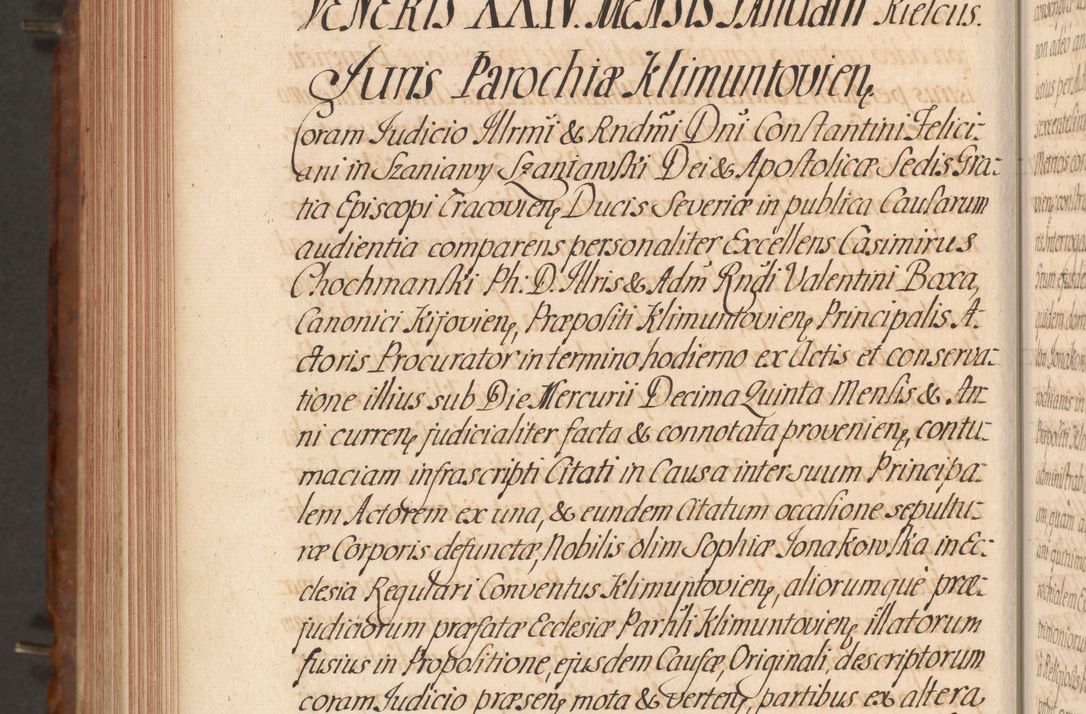 VENERIS XXIV. MENSIS JANUARII Kielcis.
Juris Parochiæ Klimuntovien.
Coram Judicio Illrmi & Rndmi Dni Constantini Felici-
ani in Szaniawy Szaniawski Dei & Apostolicæ Sedis Gra-
tia Episcopi Cracovien. Ducis Severiæ in publica Causarum
audientia comparens personaliter Excellens Casimirus
Chochmanski Ph: D. Illris & Adm Rndi Valentini Boxa,
Canonici Kijovien, Præpositi Klimuntovien, Principalis A-
ctoris Procurator in termino hodierno ex Actis et conserva-
tione illius sub Die Mercurii Decima Quinta Mensis & An-
ni curren, judicialiter facta & connotata provenien, contu-
maciam infrascripti Citati in Causa inter suum Principa-
lem Actorem ex una, & eundem Citatum occasione sepultu-
ræ Corporis defunctæ, Nobilis olim Sophiæ Jonakowska in Ec-
clesia Regulari Conventus Klimuntovien, aliorumque præ-
judiciorum præfatæ Ecclesiæ Parhli Klimuntovien, illatorum
fusius in Propositione, ejusdem Causæ, Originali, descriptorum
coram Judicio præsen, mota & verten, partibus ex altera,